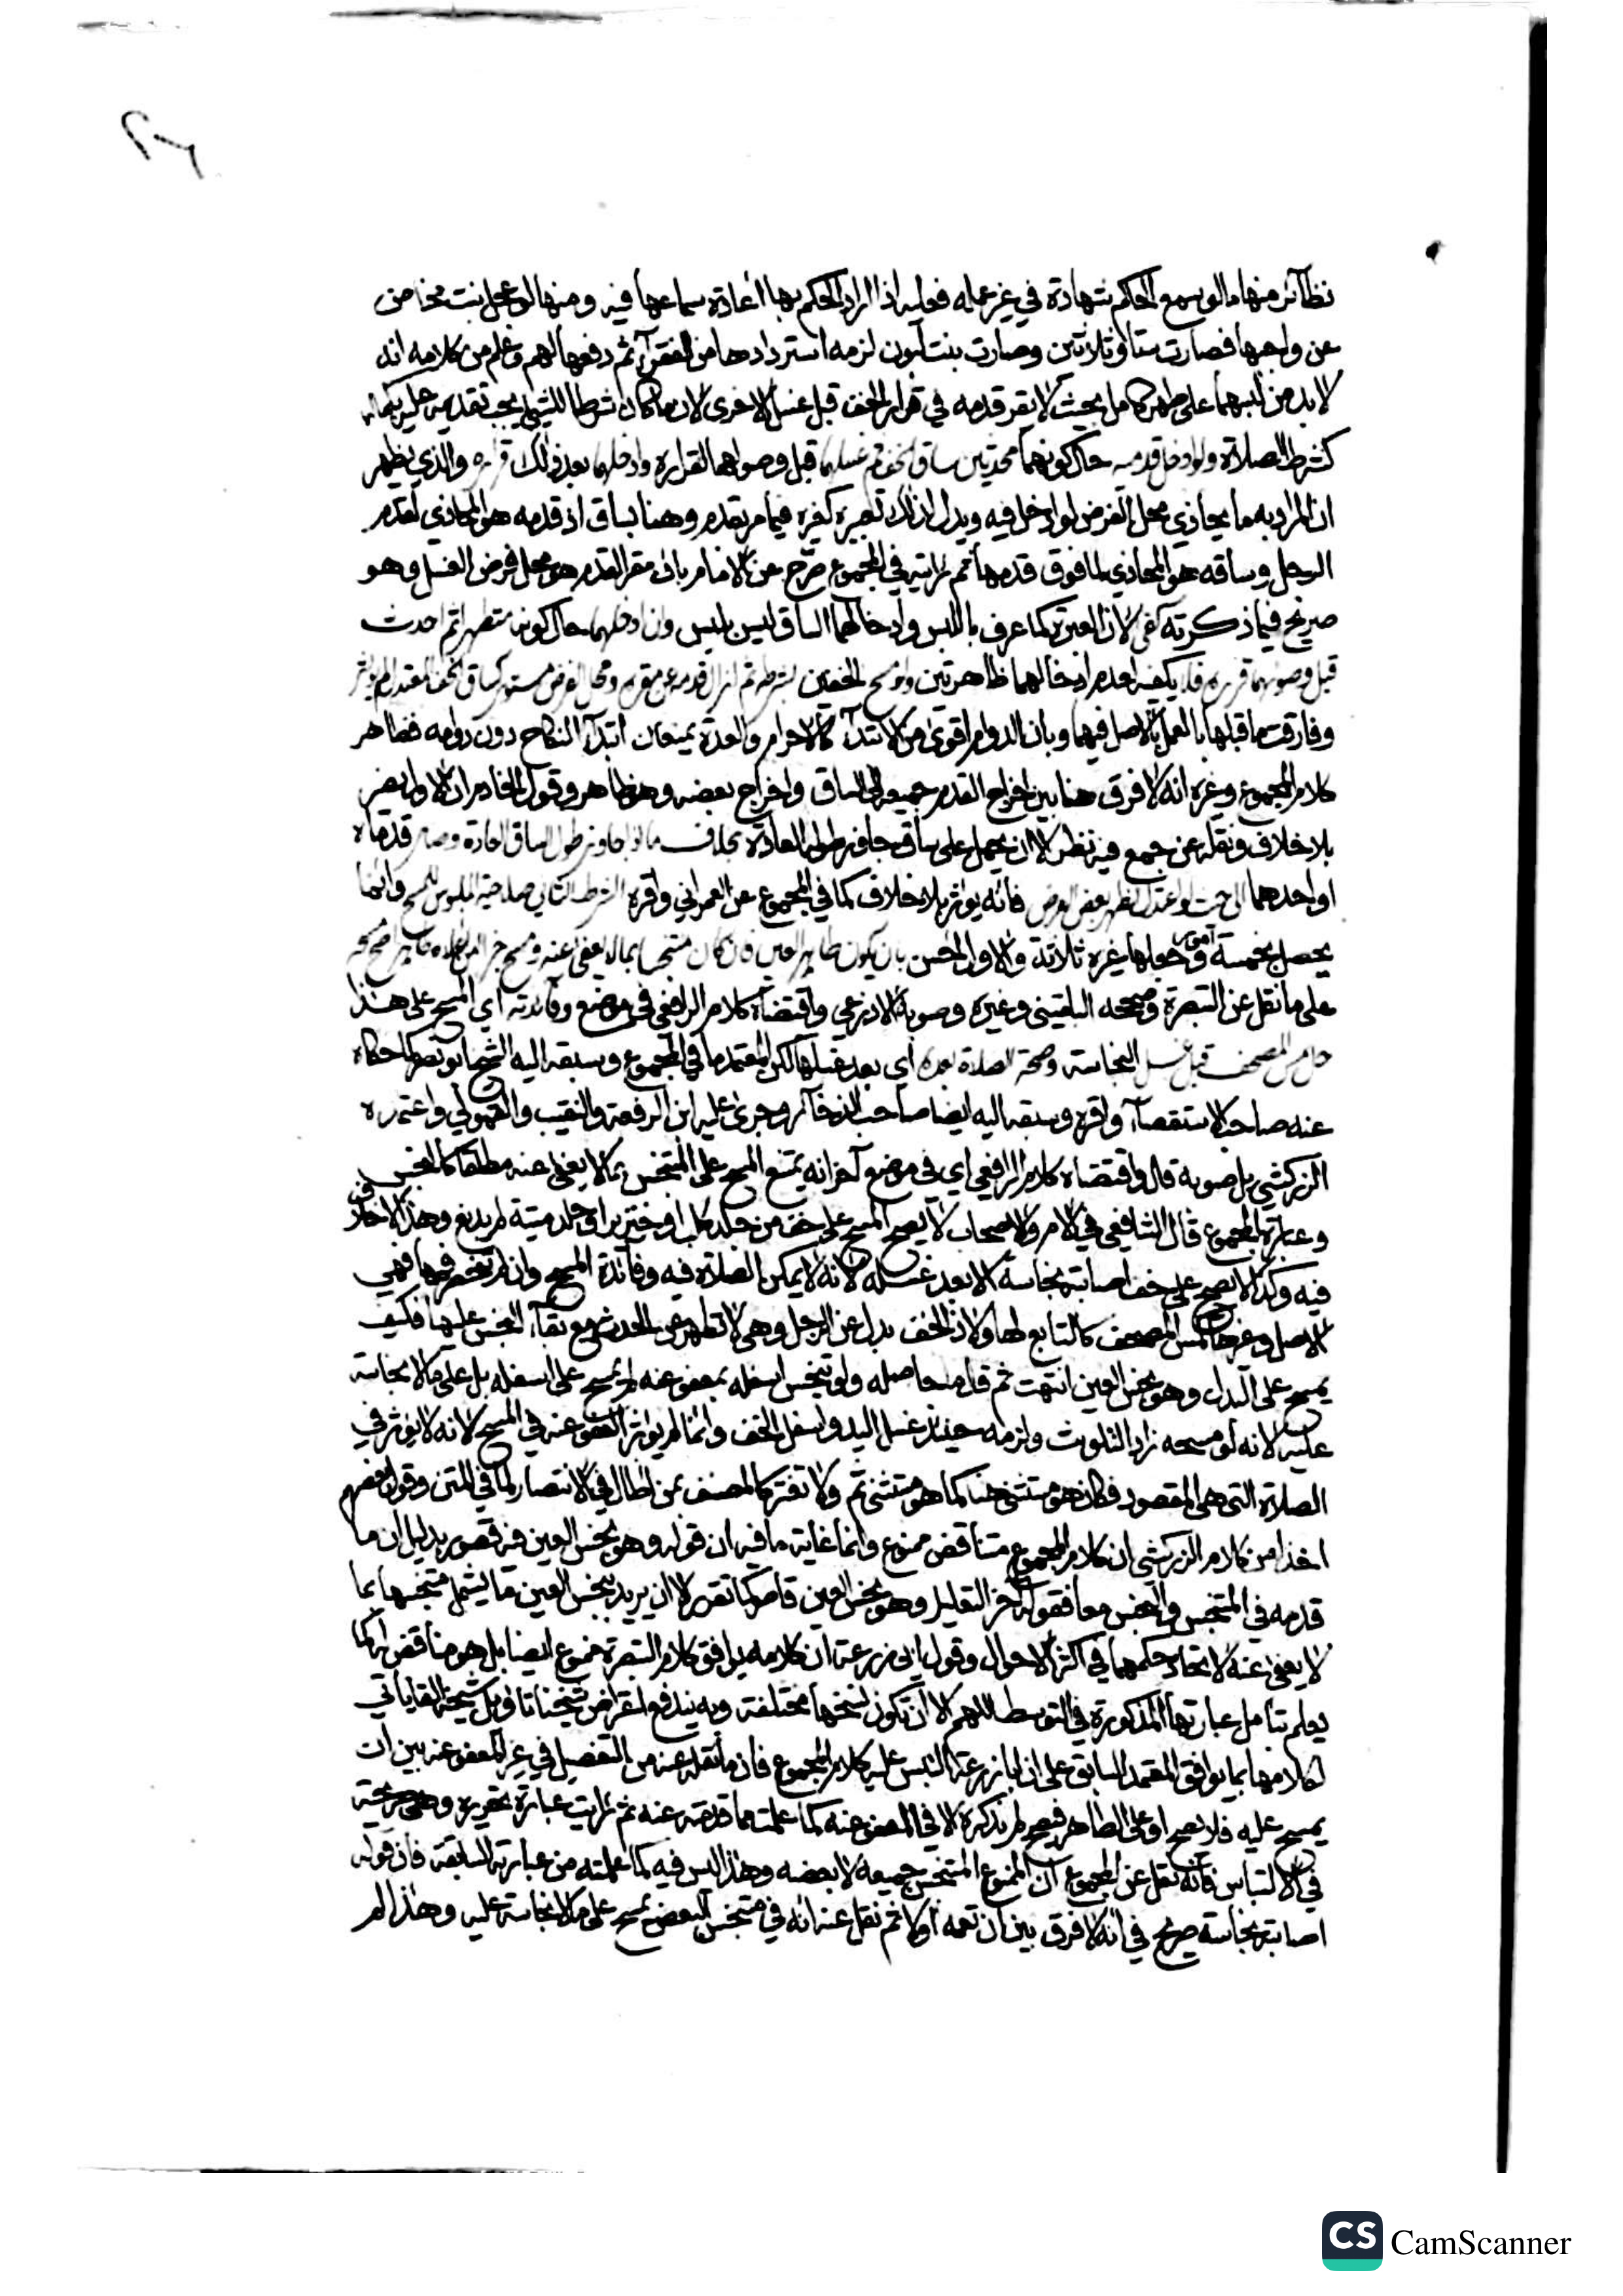 ٢٦
نظائر منها ما لو سمع الحاكم شهادة في غير عمله فعليه اذا اراد الحكم بها اعادة سماعها فيه ومنها لو عجل بنت مخاض
عن واجبها فصارت ستا وثلاثين وصارت بنت لبون لزمه استردادها من الفقراء ثم دفعها لهم وعلم من كلامه انه
لا بد من لبسهما على طهر كامل بحيث لا يقر قدمه في قرار الخف قبل غسل الاخرى لان ما كان شرطا للشيء يجب تقديمه عليه بكماله
كشرط الصلاة ولو ادخل قدميه حال كونهما محدثين ساق الخف ثم غسلهما قبل وصولهما القراره وادخلهما بعد ذلك قراره والذي يظهر
ان المراد به ما يحاذي محل الفرض لو ادخل فيه ويدل لذلك تعبيره كغيره فيما مر بقدم وهنا بساق اذ قدمه هو المحاذي لقدم
الرجل وساقه هو المحاذي لما فوق قدمها ثم رايته في المجموع صرح عن الامام بان مقر القدم هو محل فرض الغسل وهو
صريح فيما ذكرته كفى لان العبرة كما عرف باللبس وادخالهما الساق ليس بلبس وان ادخلهما حال كونه متطهرا ثم احدث
قبل وصولهما قراره فلا يكفيه لعدم ادخالهما طاهرتين ولو مسح الخفين بشرطه ثم ازال قدمه عن مقره ومحل الفرض مستور بساق الخف المعتدل لم يؤثر
وفارقت ما قبلها بالعمل بالاصل فيهما وبان الدوام اقوى من الابتداء كالاحرام والعدة يمنعان ابتداء النكاح دون دوامه فظاهر
كلام المجموع وغيره انه لا فرق هنا بين اخراج القدم جميعه الى الساق واخراج بعضه وهو ظاهر وقول الخادم ان الاول يضر
بلا خلاف ونقله عن جمع فيه نظر الا ان يحمل على ساق جاوز طوله العادة بخلاف ما لو جاوز طول الساق العادة وصار قدماه
او احدهما الى حيث لو اعتدل لظهر بعض الفرض فانه يؤثر بلا خلاف كما في المجموع عن العمراني واقره الشرط الثاني صلاحية الملبوس للمسح وانما
يحصل بخمسة امور وجعلها غيره ثلاثة والاول احسن بان يكون طاهر العين فان كان متنجسا بما لا يعفى عنه ومسح جزا من اعلاه طاهرا صح مسحه
على ما نقل عن التبصرة وصححه البلقيني وغيره وصوبه الاذرعي واقتضاه كلام الرافعي في موضع وفائدته اي المسح على هذا
حل مس المصحف قبل غسل النجاسة وصحة الصلاة بعده اي بعد غسلها لكن المعتمد ما في المجموع وسبقه اليه الشيخ ابو نصر كما حكاه
عنه صاحب الاستقصاء واقره وسبقه اليه ايضا صاحب الذخائر وجرى عليه ابن الرفعة والنقيب والقمولي واعتمده
الزركشي بل صوبه قال واقتضاه كلام الرافعي اي في موضع آخر انه يمتنع المسح على المتنجس بما لا يعفى عنه مطلقا كالنجس
وعبارة المجموع قال الشافعي في الام والاصحاب لا يصح المسح على خف من جلد كلب او خنزير او جلد ميتة لم يدبغ وهذا لا خلاف
فيه وكذا لا يصح على خف اصابته نجاسة الا بعد غسله لانه لا يمكن الصلاة فيه وفائدة المسح وان لم تنحصر فيها فهي
الاصل وغيرها كمس المصحف كالتابع لها ولان الخف بدل عن الرجل وهي لا تطهر عن الحدث مع بقاء النجس عليها فكيف
يمسح على البدل وهو نجس العين انتهت ثم قال ما حاصله ولو تنجس اسفله بمعفو عنه لم يمسح على اسفله بل على ما لا نجاسة
عليه لانه لو مسحه زاد التلويث ولزمه حينئذ غسل اليد واسفل الخف وانما لم يؤثر المعفو عنه في المسح لانه لا يؤثر في
الصلاة التي هي المقصود فكان هو مستثنى هنا كما هو مستثنى ثم ولا تغتر كالمصنف بمن اطال في الانتصار لما في المتن وقول بعضهم
اخذا من كلام الزركشي ان كلام المجموع متناقض ممنوع وانما غاية ما فيه ان قوله وهو نجس العين فيه قصور بدليل ان ما
قدمه في المتنجس والنجس معا فقوله آخر التعليل وهو نجس العين قاصر كما تقرر الا ان يريد بنجس العين ما يشمل متنجسها بما
لا يعفى عنه لاتحاد حكمهما في اكثر الاحوال وقول ابي زرعة ان كلامه يوافق كلام التبصرة ممنوع ايضا بل هو مناقض له كما
يعلم بتامل عبارتها المذكورة في التوسط اللهم الا ان تكون نسخها مختلفة وبه يندفع اعتراض شيخنا تاويل شيخه القاياتي
لكلامها بما يوافق المعتمد السابق على ان ابا زرعة التبس عليه كلام المجموع فان ما نقله عنه من التفصيل في غير المعفو عنه بين ان
يمسح عليه فلا يصح او على الطاهر فيصح لم يذكره الا في المعفو عنه كما علمت مما قدمته عنه ثم رايت عبارة تحريره وهي صريحة
في الالتباس فانه نقل عن المجموع ان الممنوع المتنجس جميعه لا بعضه وهذا ليس فيه كما علمته من عبارته السابقة فان قوله
اصابته نجاسة صريح في انه لا فرق بين ان تعمه او لا ثم نقل عنه انه في متنجس البعض يمسح على ما لا نجاسة عليه وهذا لم
CS CamScanner